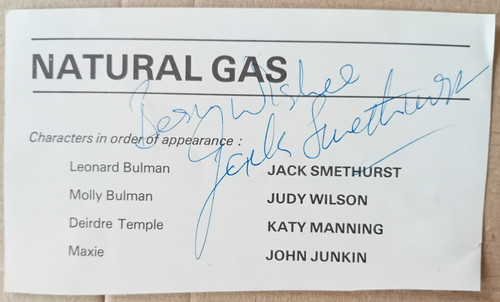 NATURAL GAS
Best Wishes
Jack Smethurst
Characters in order of appearance :
Leonard Bulman JACK SMETHURST
Molly Bulman JUDY WILSON
Deirdre Temple KATY MANNING
Maxie JOHN JUNKIN